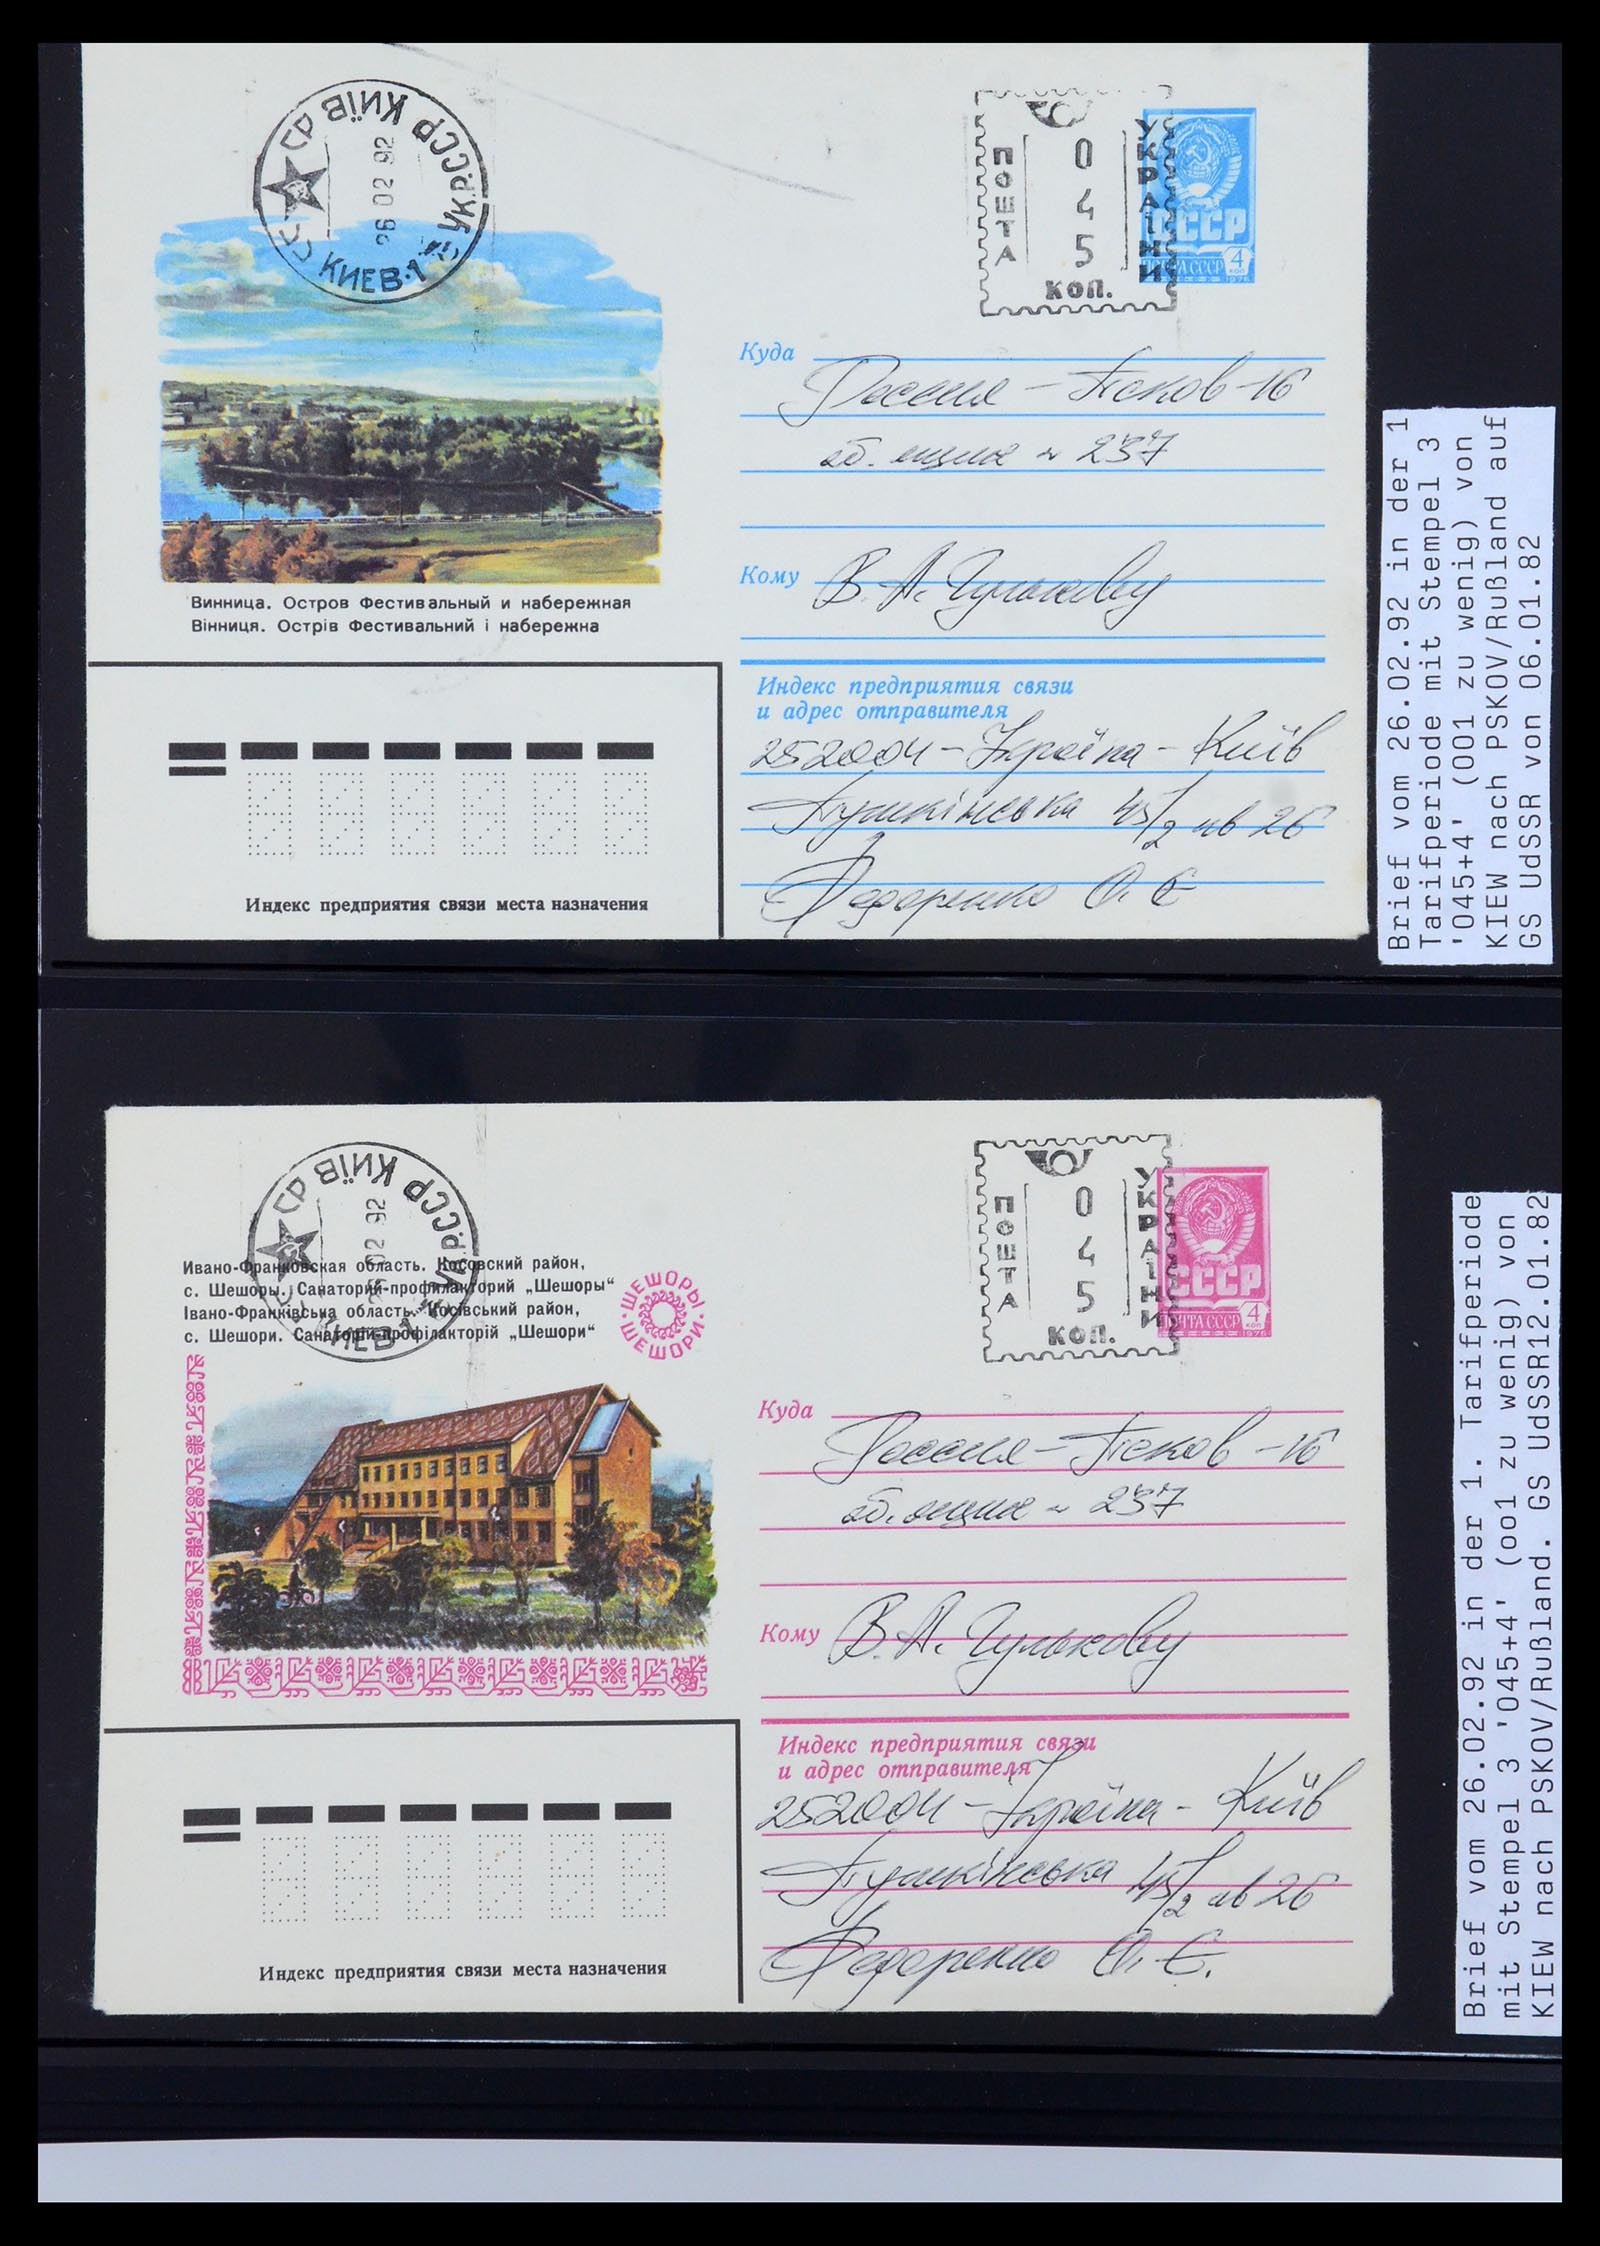 УКР.СССР КИЇВ
26 02 92
КИЕВ-1
ПОШТА
045
КОП.
УКРАЇНИ
СССР
ПОЧТА СССР 4 коп
1976
Куда
Россия - Псков - 16
аб. ящик N 237
Кому
В. А. Гулькову
Винница. Остров Фестивальный и набережная
Вінниця. Острів Фестивальний і набережна
Индекс предприятия связи
и адрес отправителя
252004 - Україна - Київ
Пушкінська 45/2 кв 26
Федоренко О. Є
Индекс предприятия связи места назначения
Brief vom 26.02.92 in der 1
Tarifperiode mit Stempel 3
'045+4' (001 zu wenig) von
KIEW nach PSKOV/Rußland auf
GS UdSSR von 06.01.82
УКР.СССР КИЇВ
26 02 92
КИЕВ-1
ПОШТА
045
КОП.
УКРАЇНИ
СССР
ПОЧТА СССР 4 коп
1976
Ивано-Франковская область. Косовский район,
с. Шешоры. Санаторий-профилакторий „Шешоры“
Івано-Франківська область. Косівський район,
с. Шешори. Санаторій-профілакторій „Шешори“
ШЕШОРЫ · ШЕШОРИ ·
Куда
Россия - Псков - 16
аб. ящик N 237
Кому
В. А. Гулькову
Индекс предприятия связи
и адрес отправителя
252004 - Україна - Київ
Пушкінська 45/2 кв 26
Федоренко О. Є.
Индекс предприятия связи места назначения
Brief vom 26.02.92 in der 1. Tarifperiode
mit Stempel 3 '045+4' (oo1 zu wenig) von
KIEW nach PSKOV/Rußland. GS UdSSR12.01.82